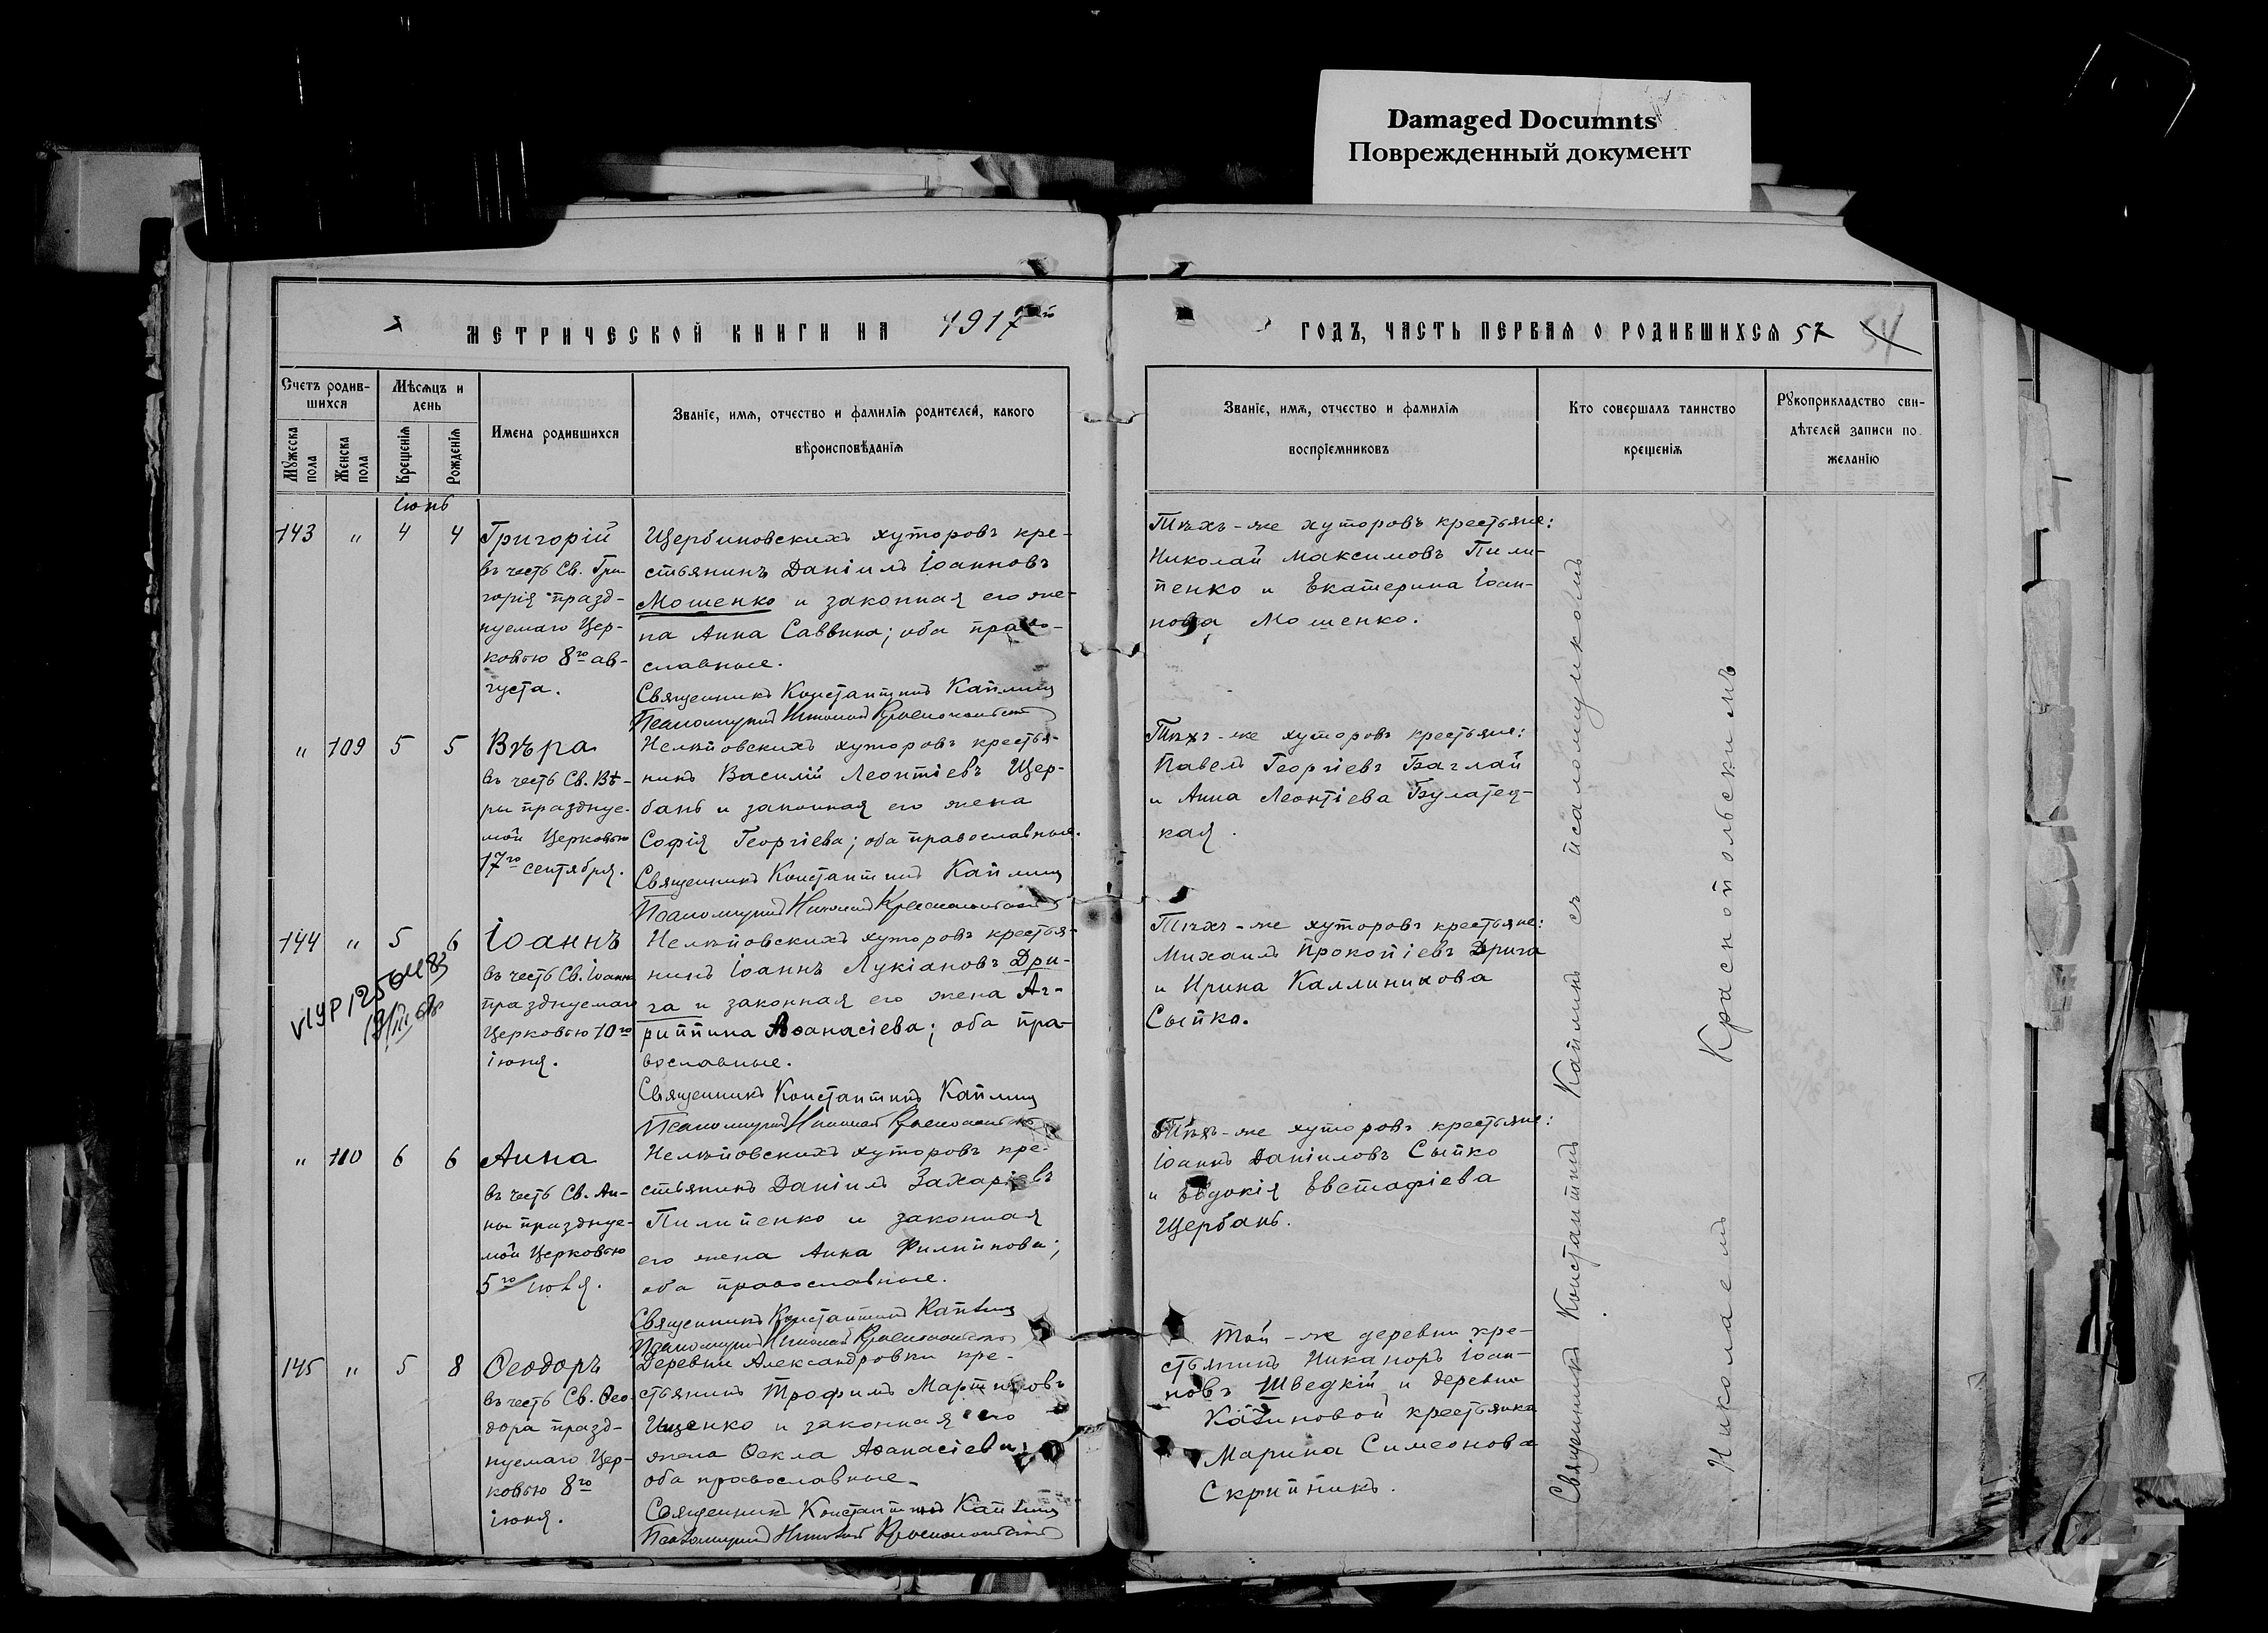 Damaged Documnts
Поврежденный документ
МЕТРИЧЕСКОЙ КНИГИ НА 1917
ГОДЪ, ЧАСТЬ ПЕРВАЯ О РОДИВШИХСЯ 57
54
Счетъ родив-
шихся
Мѣсяцъ и
день
Мужеска
пола
Женска
пола
Крещенія
Рожденія
Имена родившихся
Званіе, имя, отчество и фамилія родителей, какого
вѣроисповѣданія
Званіе, имя, отчество и фамилія
воспріемниковъ
Кто совершалъ таинство
крещенія
Рукоприкладство сви-
дѣтелей записи по
желанію
Іюнь
143 " 4 4
Григорій
въ честь Св. Гри-
горія празд-
нуемаго Цер-
ковью 8го ав-
густа.
Щербиновскихъ хуторовъ кре-
стьянинъ Даніилъ Іоанновъ
Мошенко и законная его же-
на Анна Саввина; оба право-
славные.
Священникъ Константинъ Каплинъ
Псаломщикъ Николай Краснопольскій
Тѣхъ-же хуторовъ крестьяне:
Николай Максимовъ Пили-
пенко и Екатерина Іоан-
нова Мошенко.
" 109 5 5
Вѣра
въ честь Св. Вѣ-
ры празднуе-
мой Церковью
17го сентября.
Нелѣповскихъ хуторовъ крестья-
нинъ Василій Леонтіевъ Щер-
бань и законная его жена
Софія Георгіева; оба православные.
Священникъ Константинъ Каплинъ
Псаломщикъ Николай Краснопольскій
Тѣхъ-же хуторовъ крестьяне:
Павелъ Георгіевъ Баглай
и Анна Леонтіева Булатец-
кая.
144 " 5 6
Іоаннъ
въ честь Св. Іоанна
празднуемаго
Церковью 10го
іюня.
Нелѣповскихъ хуторовъ крестья-
нинъ Іоаннъ Лукіановъ Дри-
га и законная его жена Аг-
риппина Аѳанасіева; оба пра-
вославные.
Священникъ Константинъ Каплинъ
Псаломщикъ Николай Краснопольскій
Тѣхъ-же хуторовъ крестьяне:
Михаилъ Прокопіевъ Дрига
и Ирина Каллиникова
Сыпко.
" 110 6 6
Анна
въ честь Св. Ан-
ны празднуе-
мой Церковью
5го іюля.
Нелѣповскихъ хуторовъ кре-
стьянинъ Даніилъ Захаріевъ
Пилипенко и законная
его жена Анна Филиппова;
оба православные.
Священникъ Константинъ Каплинъ
Псаломщикъ Николай Краснопольскій
Тѣхъ-же хуторовъ крестьяне:
Іоаннъ Даніиловъ Сыпко
и Евдокія Евстафіева
Щербань.
145 " 5 8
Ѳеодоръ
въ честь Св. Ѳео-
дора празд-
нуемаго Цер-
ковью 8го
іюня.
Деревни Александровки кре-
стьянинъ Трофимъ Мартиновъ
Ищенко и законная его
жена Ѳекла Аѳанасіева;
оба православные.
Священникъ Константинъ Каплинъ
Псаломщикъ Николай Краснопольскій
Той-же деревни кре-
стьянинъ Никаноръ Іоан-
новъ Шведкій и деревни
Калиновой крестьянка
Марина Симеонова
Скрипникъ.
Священникъ Константинъ Каплинъ съ псаломщикомъ
Николаемъ Краснопольскимъ